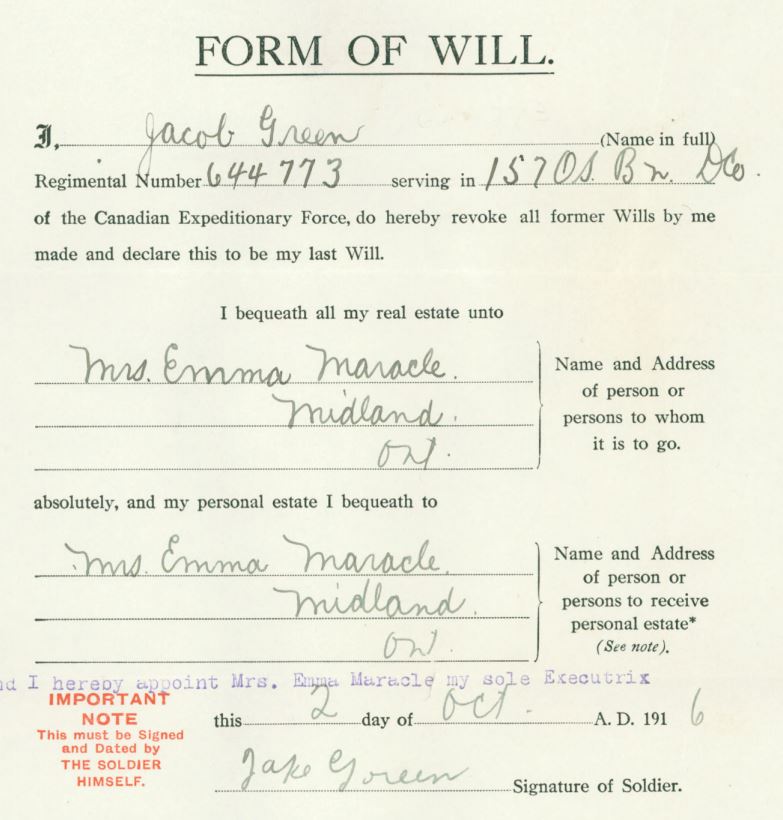 FORM OF WILL.
I, Jacob Green (Name in full)
Regimental Number 644773 serving in 157 OS. Bn. D Co.
of the Canadian Expeditionary Force, do hereby revoke all former Wills by me
made and declare this to be my last Will.
I bequeath all my real estate unto
Mrs. Emma Maracle.
Midland.
Ont.
Name and Address
of person or
persons to whom
it is to go.
absolutely, and my personal estate I bequeath to
Mrs. Emma Maracle.
Midland.
Ont.
Name and Address
of person or
persons to receive
personal estate*
(See note).
nd I hereby appoint Mrs. Emma Maracle my sole Executrix
IMPORTANT
NOTE
This must be Signed
and Dated by
THE SOLDIER
HIMSELF.
this 2 day of Oct. A. D. 1916
Jake Green Signature of Soldier.